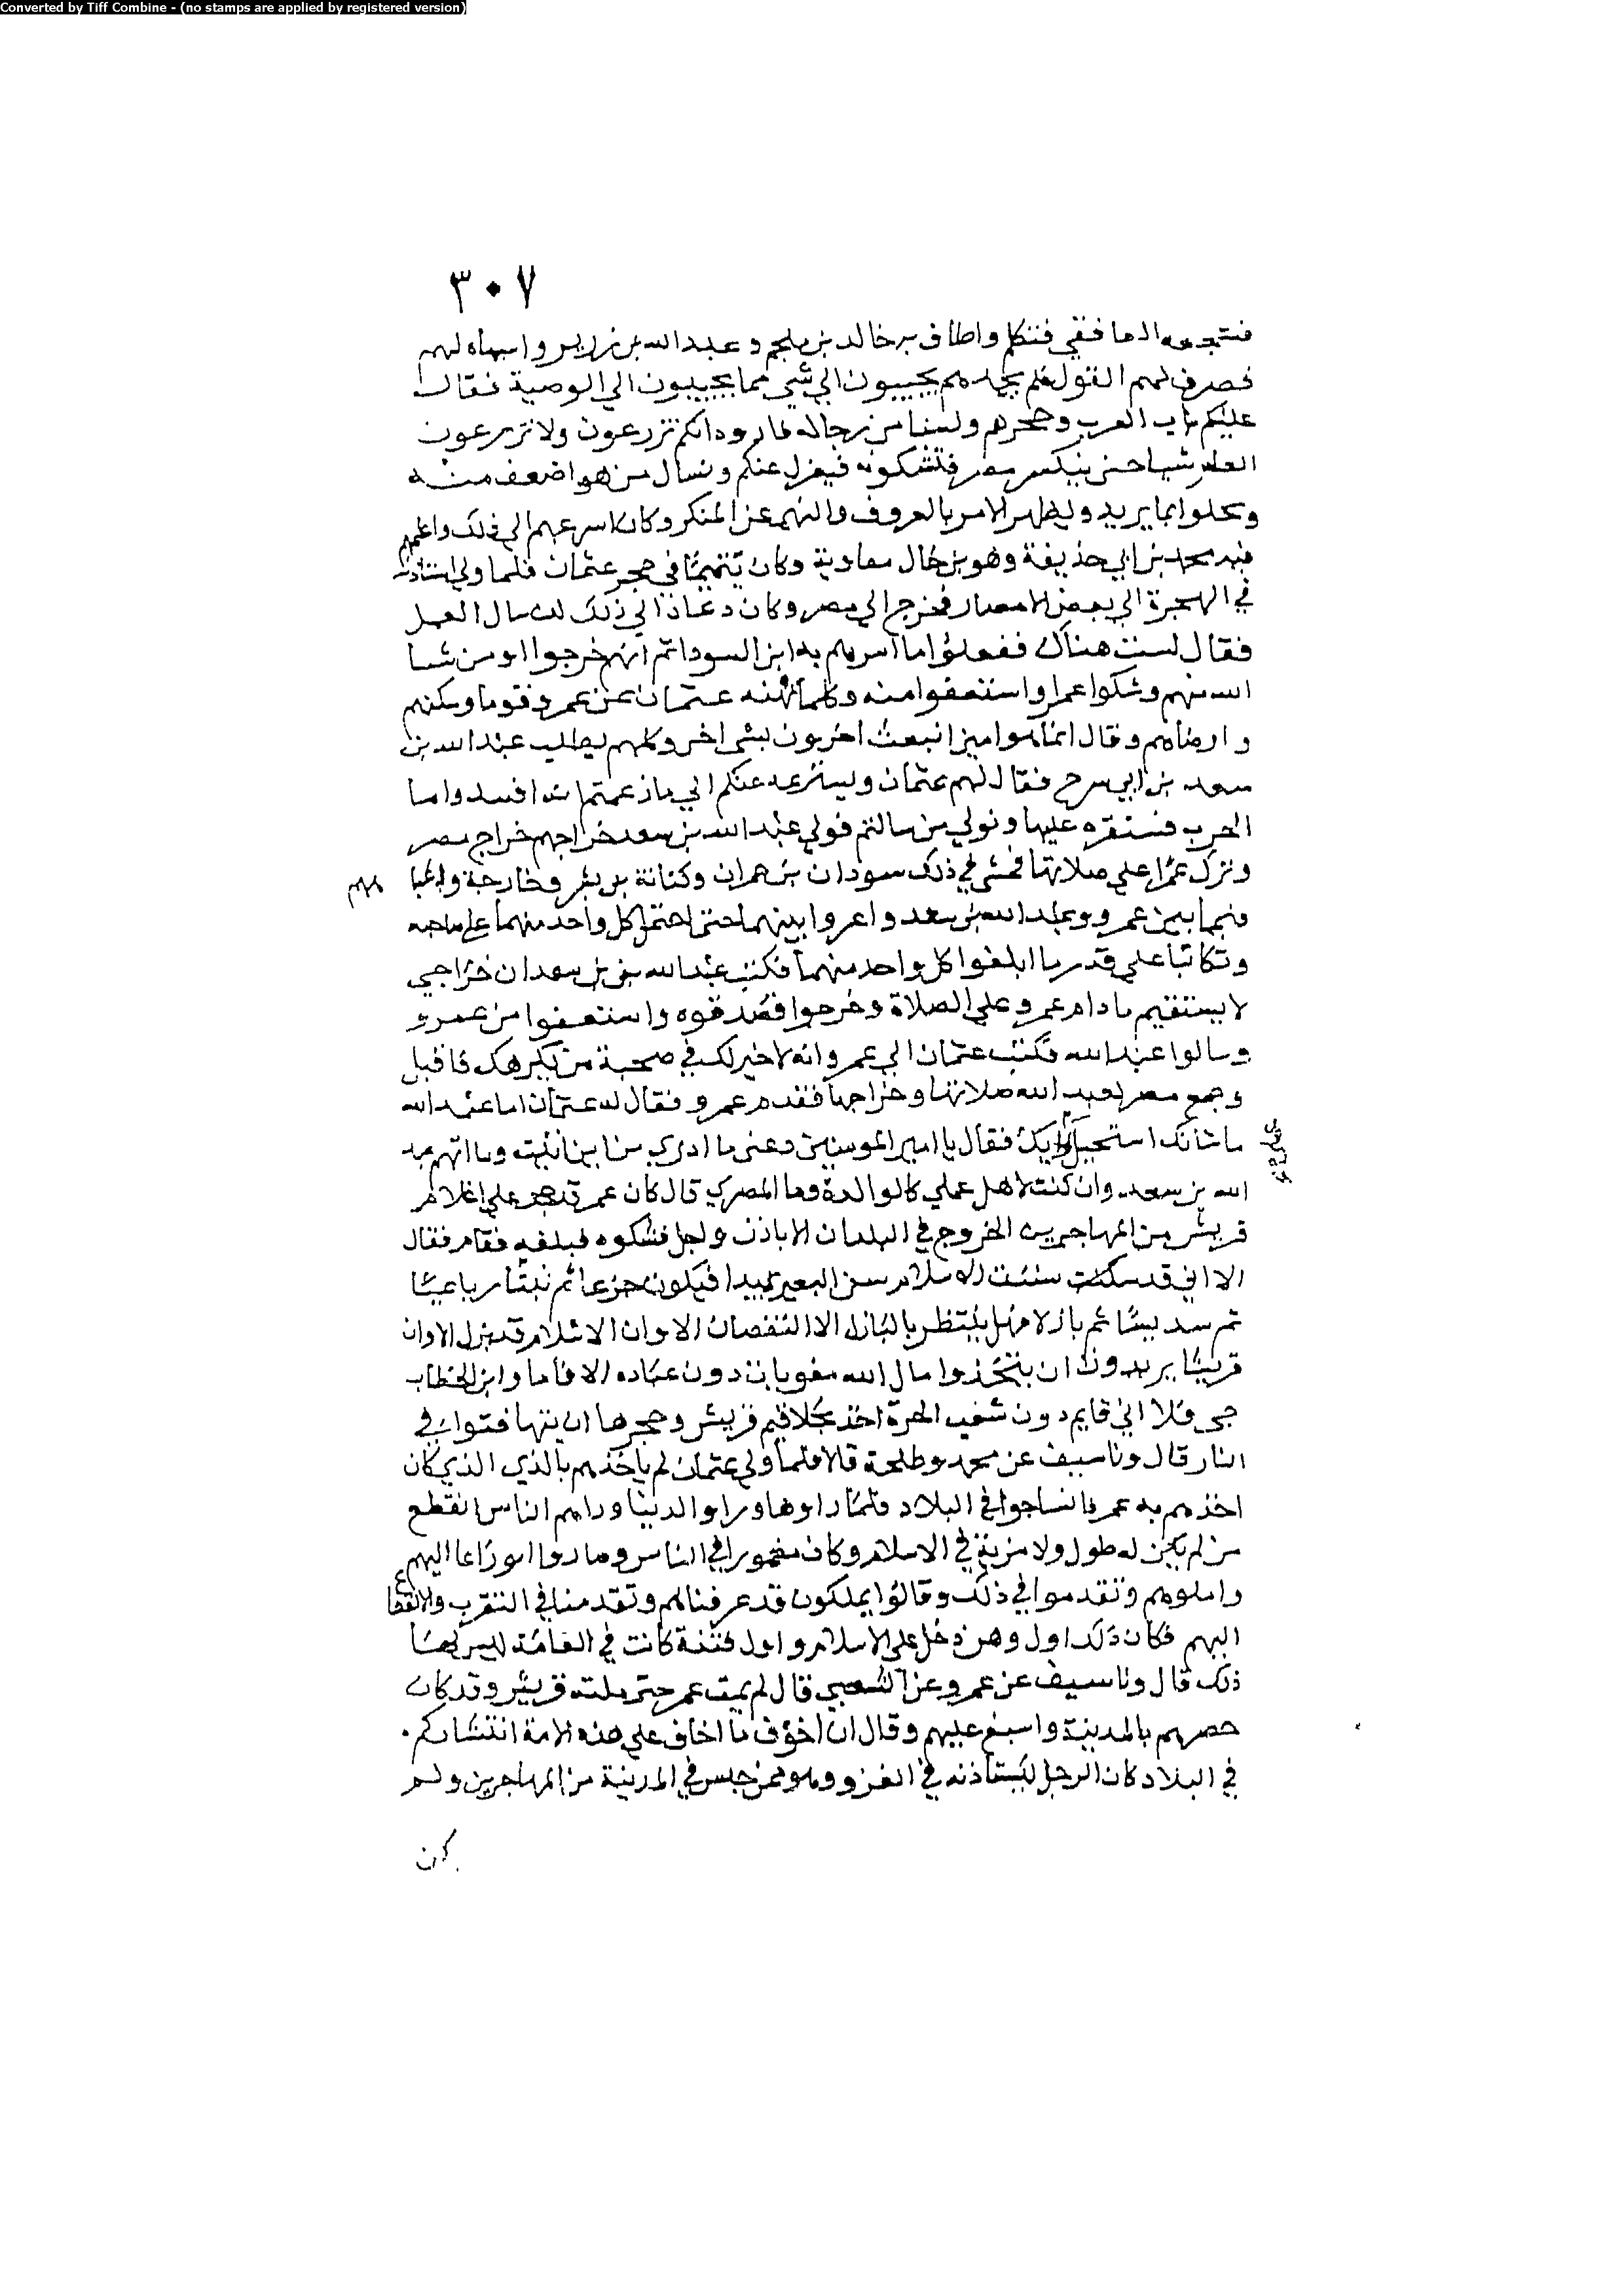 Converted by Tiff Combine - (no stamps are applied by registered version)
٣٠٧
فتكلم واطاف به خالد بن ملجم وعبد الله بن زرير واسباه لهم
فصرف لهم القول فلم يجدهم يجيبون الي شي مما يجيبون الي الوصية فقال
عليكم بناب العرب وحجرهم ولسنا من رجاله فاروه انكم تزرعون ولا تزرعون
العام شيا حتي ينكسر مصر فتشكونه فيعزل عنكم ونسال من هو اضعف منه
ونخلوا بما يريد ونظهر الامر بالعروف والنهي عن المنكر وكان اسرعهم الي ذلك واعلمهم
فيه محمد بن ابي حذيفة وهو بن خال معاوية وكان يتيمًا في حجر عثمان فلما ولي استاذنه
في الهجرة الي بعض الامصار فخرج الي مصر وكان دعاه الي ذلك انه سال العمل
فقال لست هناك ففعلوا ما امرهم به ابن السودا ثم انهم خرجوا او من شا
الله منهم وشكوا عمرا واستعفوا منه وكلما نهنه عثمان عن عمرو قوما وسكتهم
وارضاهم وقال انما هو امين انبعث اخرون بشي اخر وكلهم يطلب عبد الله بن
سعد بن ابي سرح فقال لهم عثمان وسننزعه عنكم الي ما زعمتم انه افسد واما
الحرب فسنقره عليها ونولي من سالتم فولي عبد الله بن سعد خراجهم خراج مصر
وترك عمرًا علي صلاتها فمشي في ذلك سودان بن حمران وكنانة بن بشر وخارجة واشبا
ههم
فيما بين عمرو وعبد الله بن سعد واغروا بينهما حتي احتمل كل واحد منهما علي صاحبه
وتكاتبا علي قدر ما ابلغوا كل واحد منهما فكتب عبد الله بن سعد ان خراجي
لا يستقيم ما دام عمرو علي الصلاة وخرجوا فصدقوه واستعفوا من عمرو
وسالوا عبد الله فكتب عثمان الي عمرو انه لا خير لك في صحبة من يكرهك فاقبل
وجمع مصر لعبد الله صلاتها وخراجها فقدم عمرو فقال له عثمان ابا عبد الله
ما شانك استحيل رايك فقال يا امير المومنين دعني ما ادري من اين اتيت وما اتهم عبد
الله بن سعد وان كنت لاهل عملي كالوالدة وما المصري قال كان عمر قد حجر علي اعلام
قريش من المهاجرين الخروج في البلدان الا باذن واجل فشكوه فبلغه فقام فقال
الا اني قد سننت الاسلام سن البعير يبدا فيكون جزعا ثم ثنيًا ثم رباعيًا
ثم سديسًا ثم بازلا فهل ينتظر بالبازل الا النقصان الا وان الاسلام قد بزل الا وان
قريشًا يريدون ان يتخذوا مال الله مغويات دون عباده الا فاما وابن الخطاب
حي فلا اني قايم دون شعب الحرة اخذ بحلاقيم قريش وحجزها ان يتهافتوا في
النار قال ونا سيف عن محمد وطلحة قالا فلما ولي عثمان لم ياخذهم بالذي الذي كان
اخذهم به عمر فانساحوا في البلاد فلما راوها وراوا الدنيا وراهم الناس انقطع
من لم يكن له طول ولا مزية في الاسلام وكان مغمورا في الناس وصاروا اوزاعا اليهم
واملوهم وتقدموا في ذلك وقالوا يملكون قد عرفناهم وتقدمنا في التقرب والانقطاع
اليهم فكان ذلك اول وهن دخل علي الاسلام واول فتنة كانت في العامة ليس الا
ذلك قال ونا سيف عن عمرو عن الشعبي قال لم يمت عمر حتي ملته قريش وقد كان
حصرهم بالمدينة واسبغ عليهم وقال ان اخوف ما اخاف علي هذه الامة انتشاركم
في البلاد كان الرجل ليستاذنه في الغزو وهو ممن حبس في المدينة من المهاجرين ولم